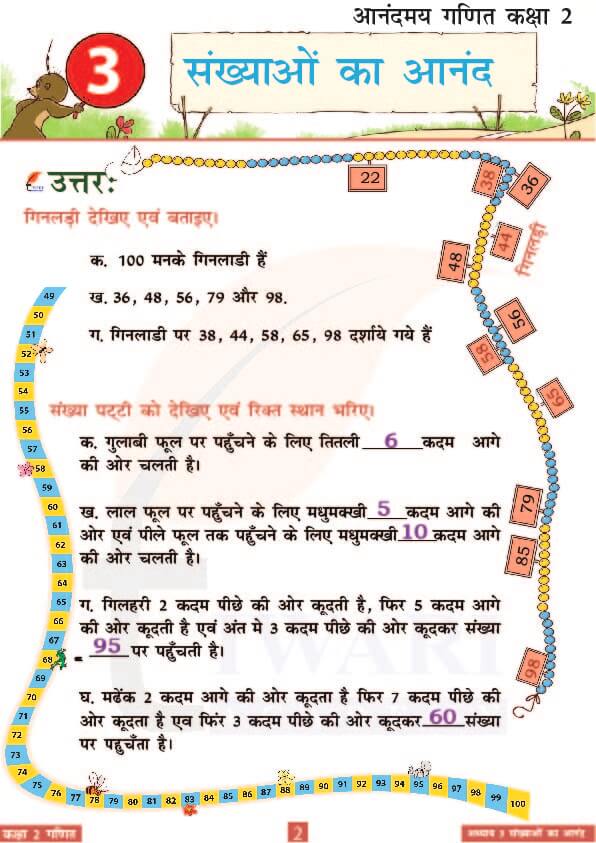 आनंदमय गणित कक्षा 2
3
संख्याओं का आनंद
उत्तरः
22
38
36
44
48
गिनलड़ी
56
58
65
79
85
98
गिनलड़ी देखिए एवं बताइए।
क. 100 मनके गिनलाडी हैं
ख. 36, 48, 56, 79 और 98.
ग. गिनलाडी पर 38, 44, 58, 65, 98 दर्शाये गये हैं
संख्या पट्टी को देखिए एवं रिक्त स्थान भरिए।
क. गुलाबी फूल पर पहुँचने के लिए तितली 6 कदम आगे
की ओर चलती है।
ख. लाल फूल पर पहुँचने के लिए मधुमक्खी 5 कदम आगे की
ओर एवं पीले फूल तक पहुँचने के लिए मधुमक्खी 10 कदम आगे
की ओर चलती है।
ग. गिलहरी 2 कदम पीछे की ओर कूदती है, फिर 5 कदम आगे
की ओर कूदती है एवं अंत मे 3 कदम पीछे की ओर कूदकर संख्या
= 95 पर पहुँचती है।
घ. मढेंक 2 कदम आगे की ओर कूदता है फिर 7 कदम पीछे की
ओर कूदता है एव फिंर 3 कदम पीछे की ओर कूदकर 60 संख्या
पर पहुचँता है।
49
50
51
52
53
54
55
56
57
58
59
60
61
62
63
64
65
66
67
68
69
70
71
72
73
74
75
76
77
78
79
80
81
82
83
84
85
86
87
88
89
90
91
92
93
94
95
96
97
98
99
100
TIWARI
कक्षा 2 गणित
2
अध्याय 3 संख्याओं का आनंद